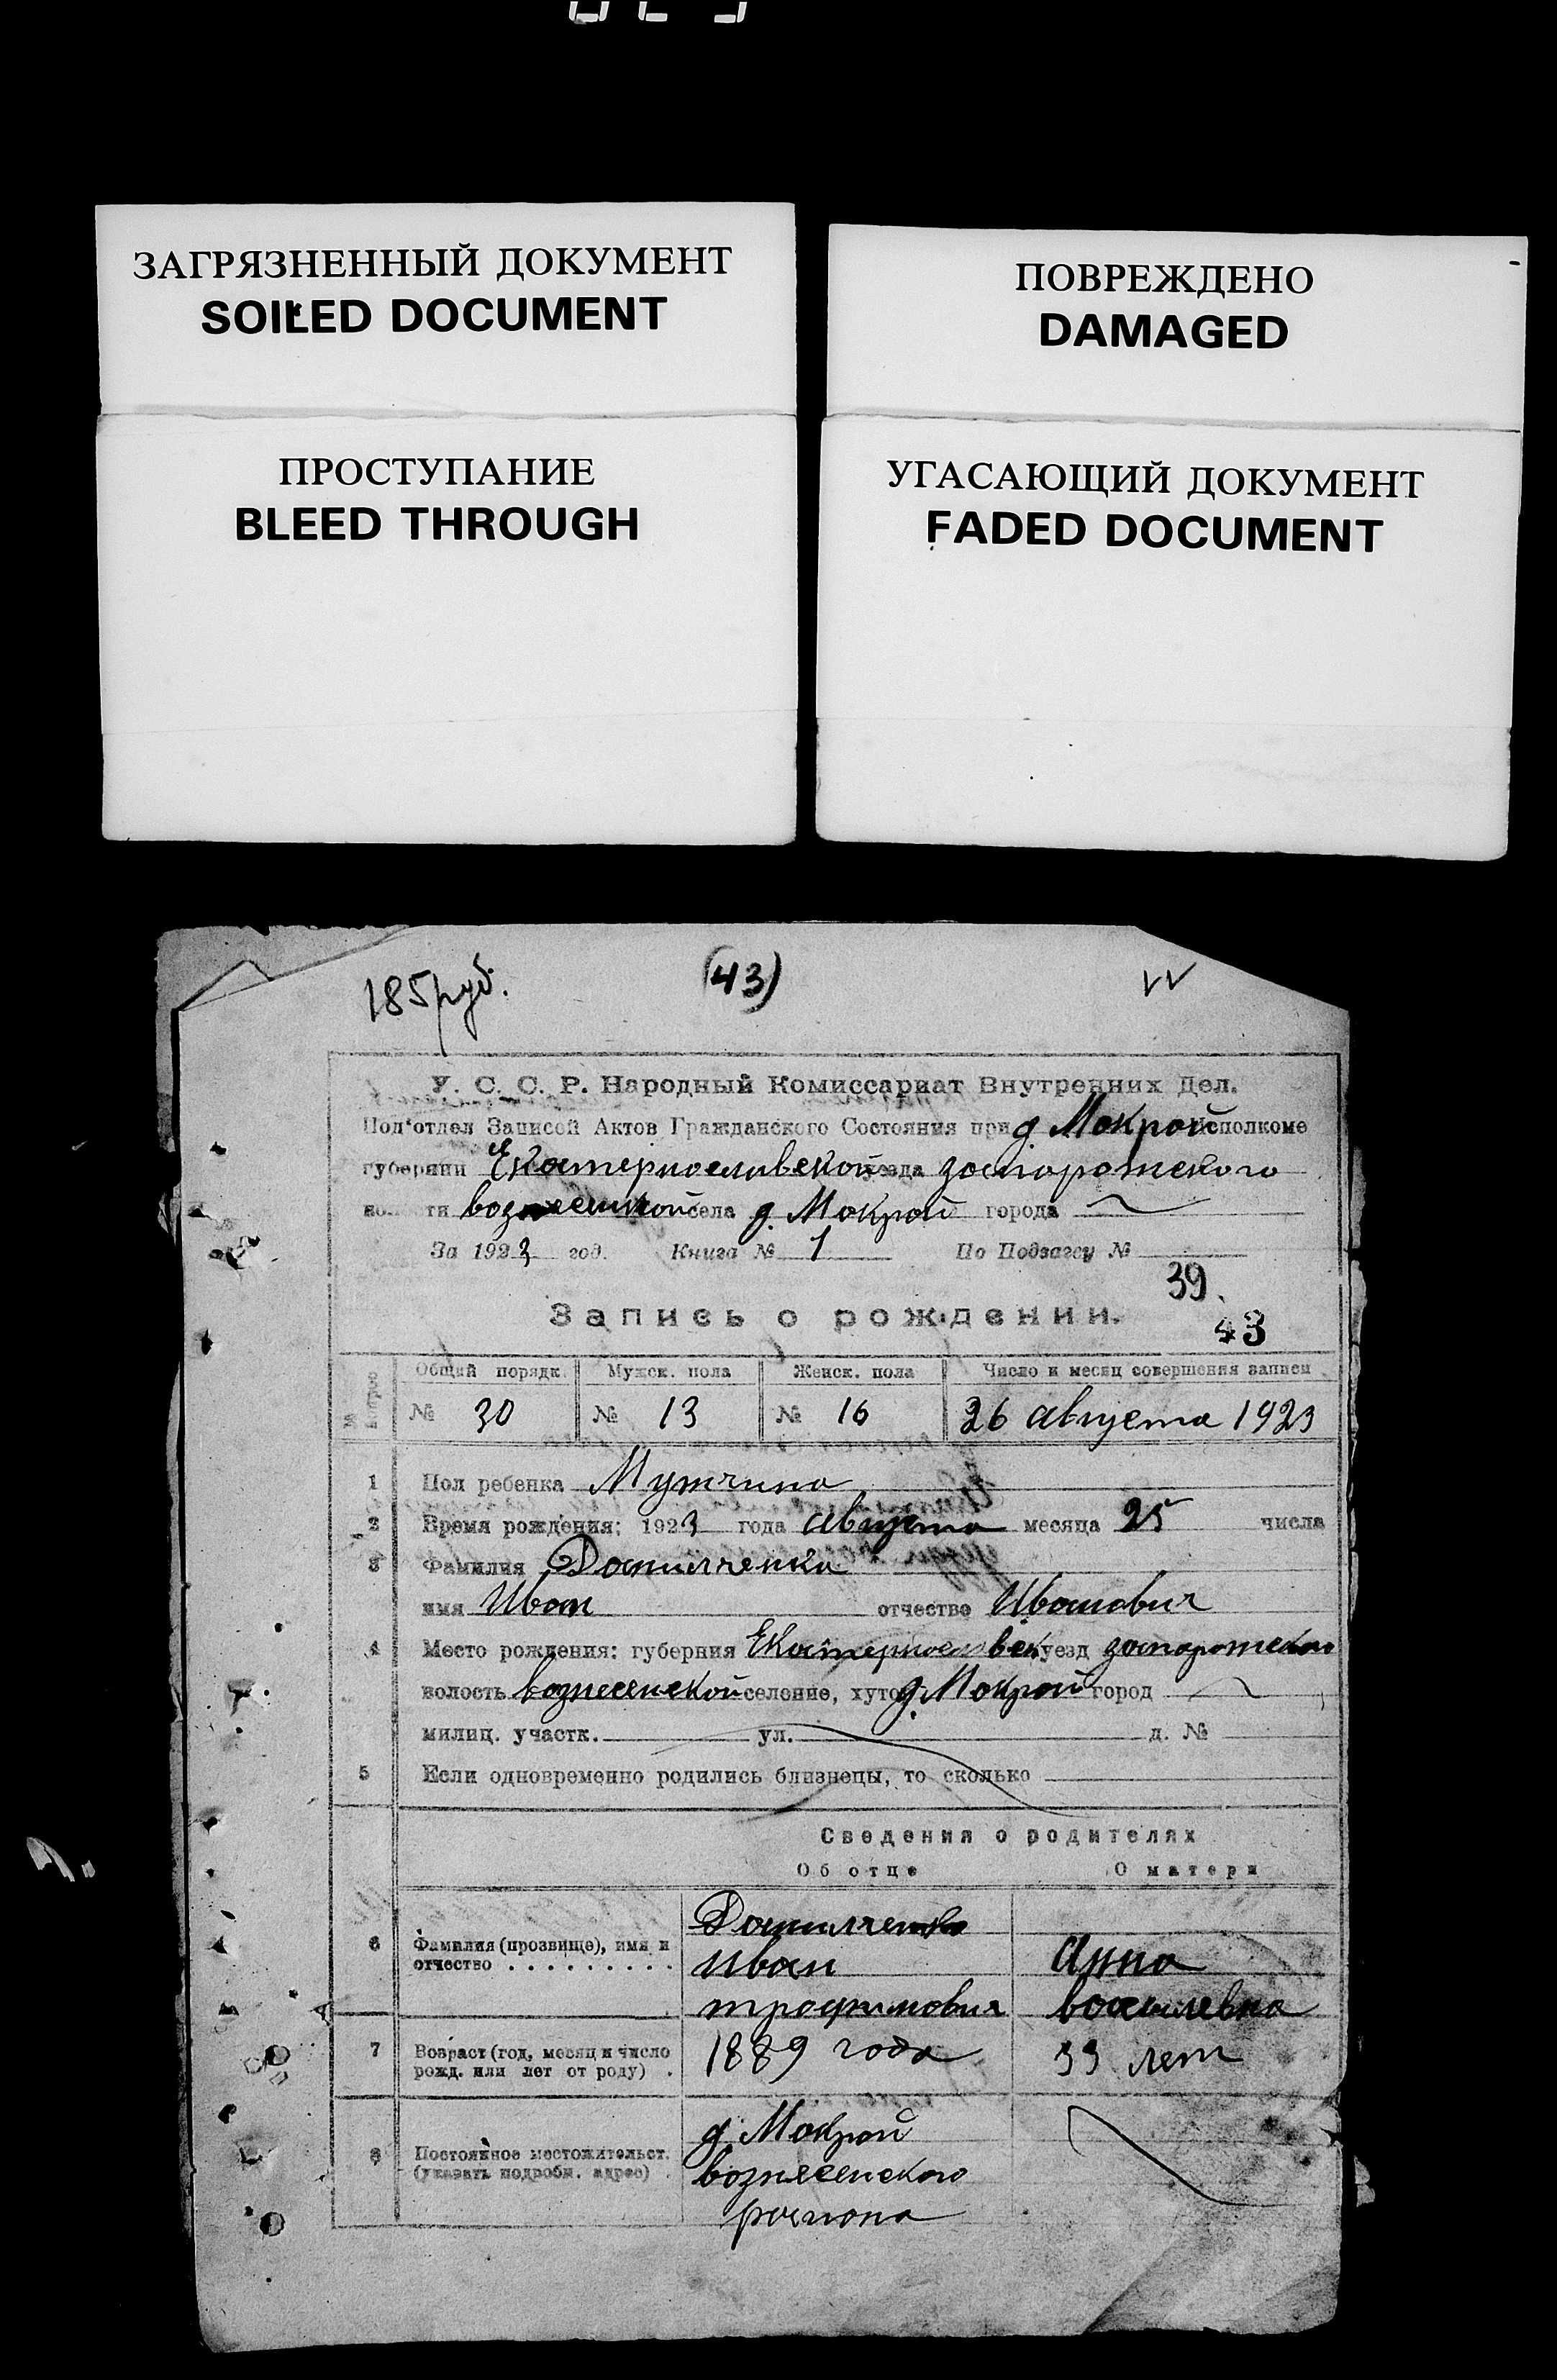 ЗАГРЯЗНЕННЫЙ ДОКУМЕНТ
SOILED DOCUMENT
ПОВРЕЖДЕНО
DAMAGED
ПРОСТУПАНИЕ
BLEED THROUGH
УГАСАЮЩИЙ ДОКУМЕНТ
FADED DOCUMENT
185 руб.
(43)
У. С. С. Р. Народный Комиссариат Внутренних Дел.
Под'отдел Записей Актов Гражданского Состояния при д. Мокрой Исполкоме
губернии Екатеринославской уезда запорожского
вознесенской села д. Мокрой города
За 1923 год. Книга № 1 По Подзагсу №
39.
Запись о рождении.
43
Общий порядк. Мужск. пола Женск. пола Число и месяц совершения записи
№ 30 № 13 № 16 26 августа 1923
1 Пол ребенка Мужчина
2 Время рождения: 1923 года августа месяца 25 числа
3 Фамилия Данилченко
имя Иван отчество Иванович
4 Место рождения: губерния Екатеринославск уезд запорожского
волость вознесенской селение, хутор д. Мокрой город
милиц. участк. ул. д. №
5 Если одновременно родились близнецы, то сколько
Сведения о родителях
Об отце О матери
6 Фамилия (прозвище), имя и отчество
Данилченко
Иван Анна
трофимович василевна
7 Возраст (год, месяц и число рожд. или лет от роду) 1889 года 33 лет
8 Постоянное местожительст. (указать подробн. адрес)
д Мокрой
вознесенского
района